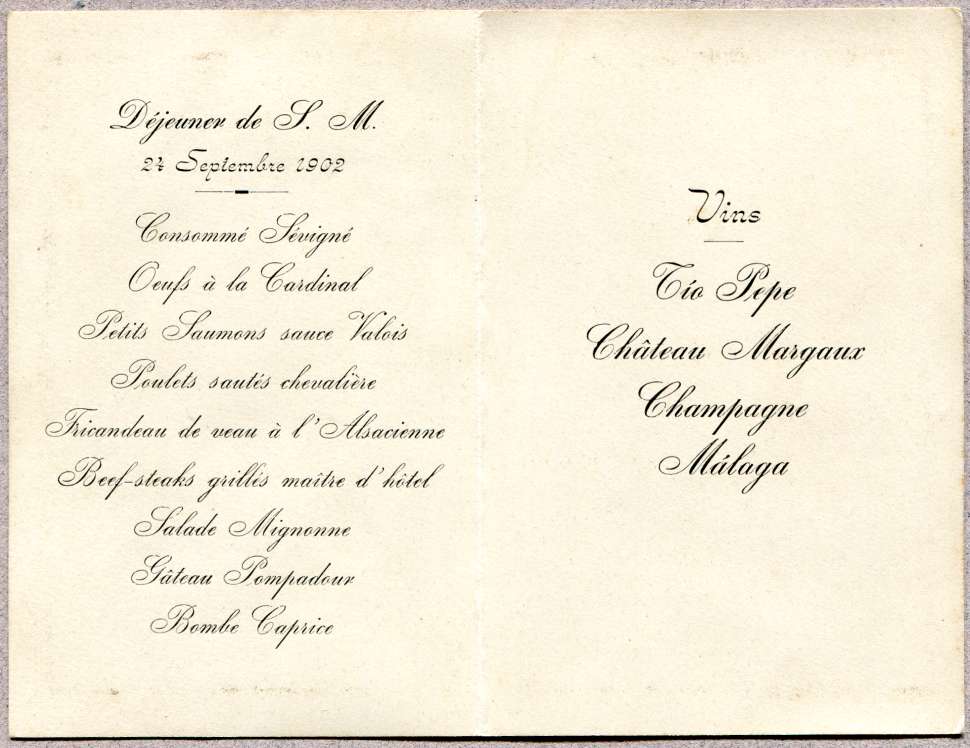 Déjeuner de S. M.
24 Septembre 1902
Consommé Sévigné
Oeufs à la Cardinal
Petits Saumons sauce Valois
Poulets sautés chevalière
Fricandeau de veau à l'Alsacienne
Beef-steaks grillés maître d'hôtel
Salade Mignonne
Gâteau Pompadour
Bombe Caprice
Vins
Tío Pepe
Château Margaux
Champagne
Málaga